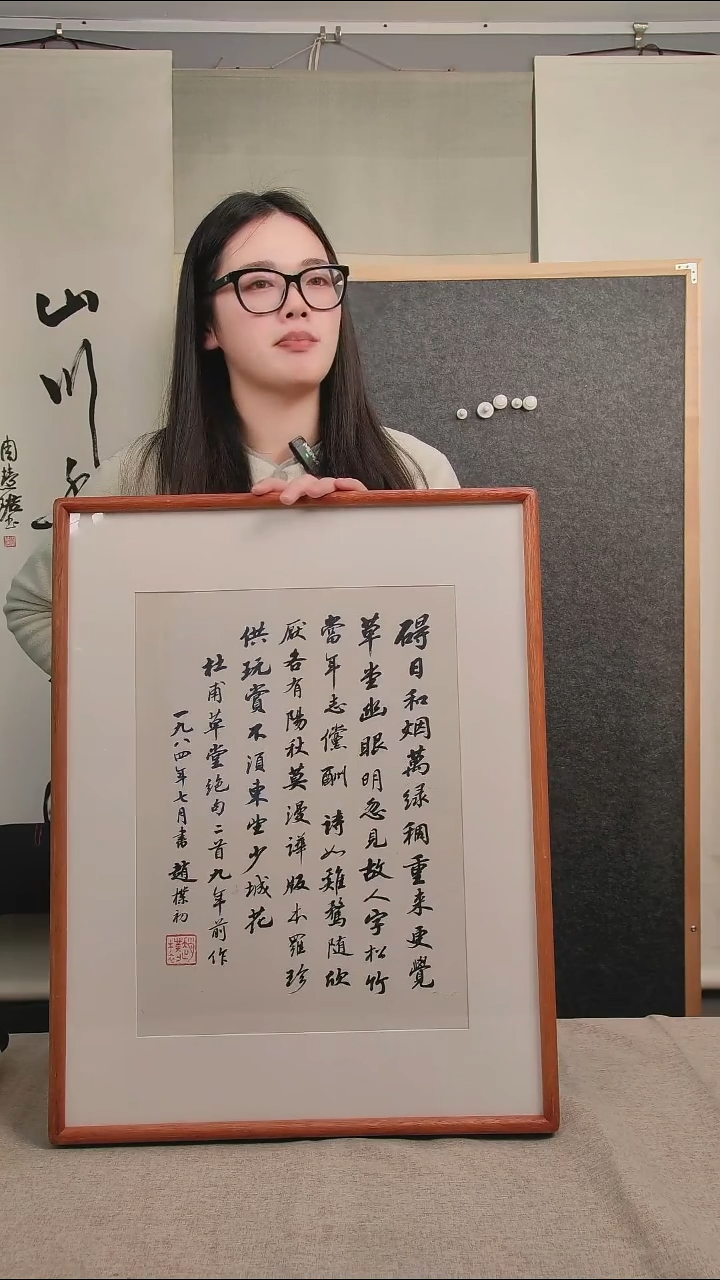 碍日和烟萬绿稠重来更覺
草堂幽眼明忽見故人字松竹
當年志儻酬 詩如雞鶩随欣
厭各有陽秋莫漫譁版本羅珍
供玩賞不須東望少城花
杜甫草堂绝句二首九年前作
一九八四年七月書 趙樸初
山川
周慧珺书